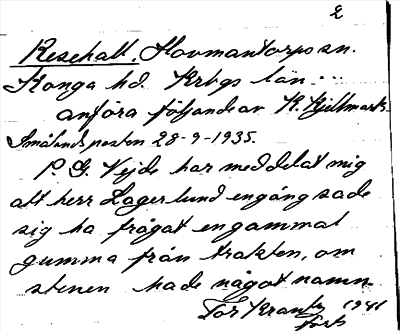 2
Resehall, Hovmantorps sn.
Konga hd. Krbgs län...
anföra följande av K. Kjellmark
Smålandsposten 28-9-1935.
P. G. Vejde har meddelat mig
att herr Lagerlund engång sade
sig ha frågat engammal
gumma från trakten, om
stenen hade något namn.
Tor Krantz 1941
forts